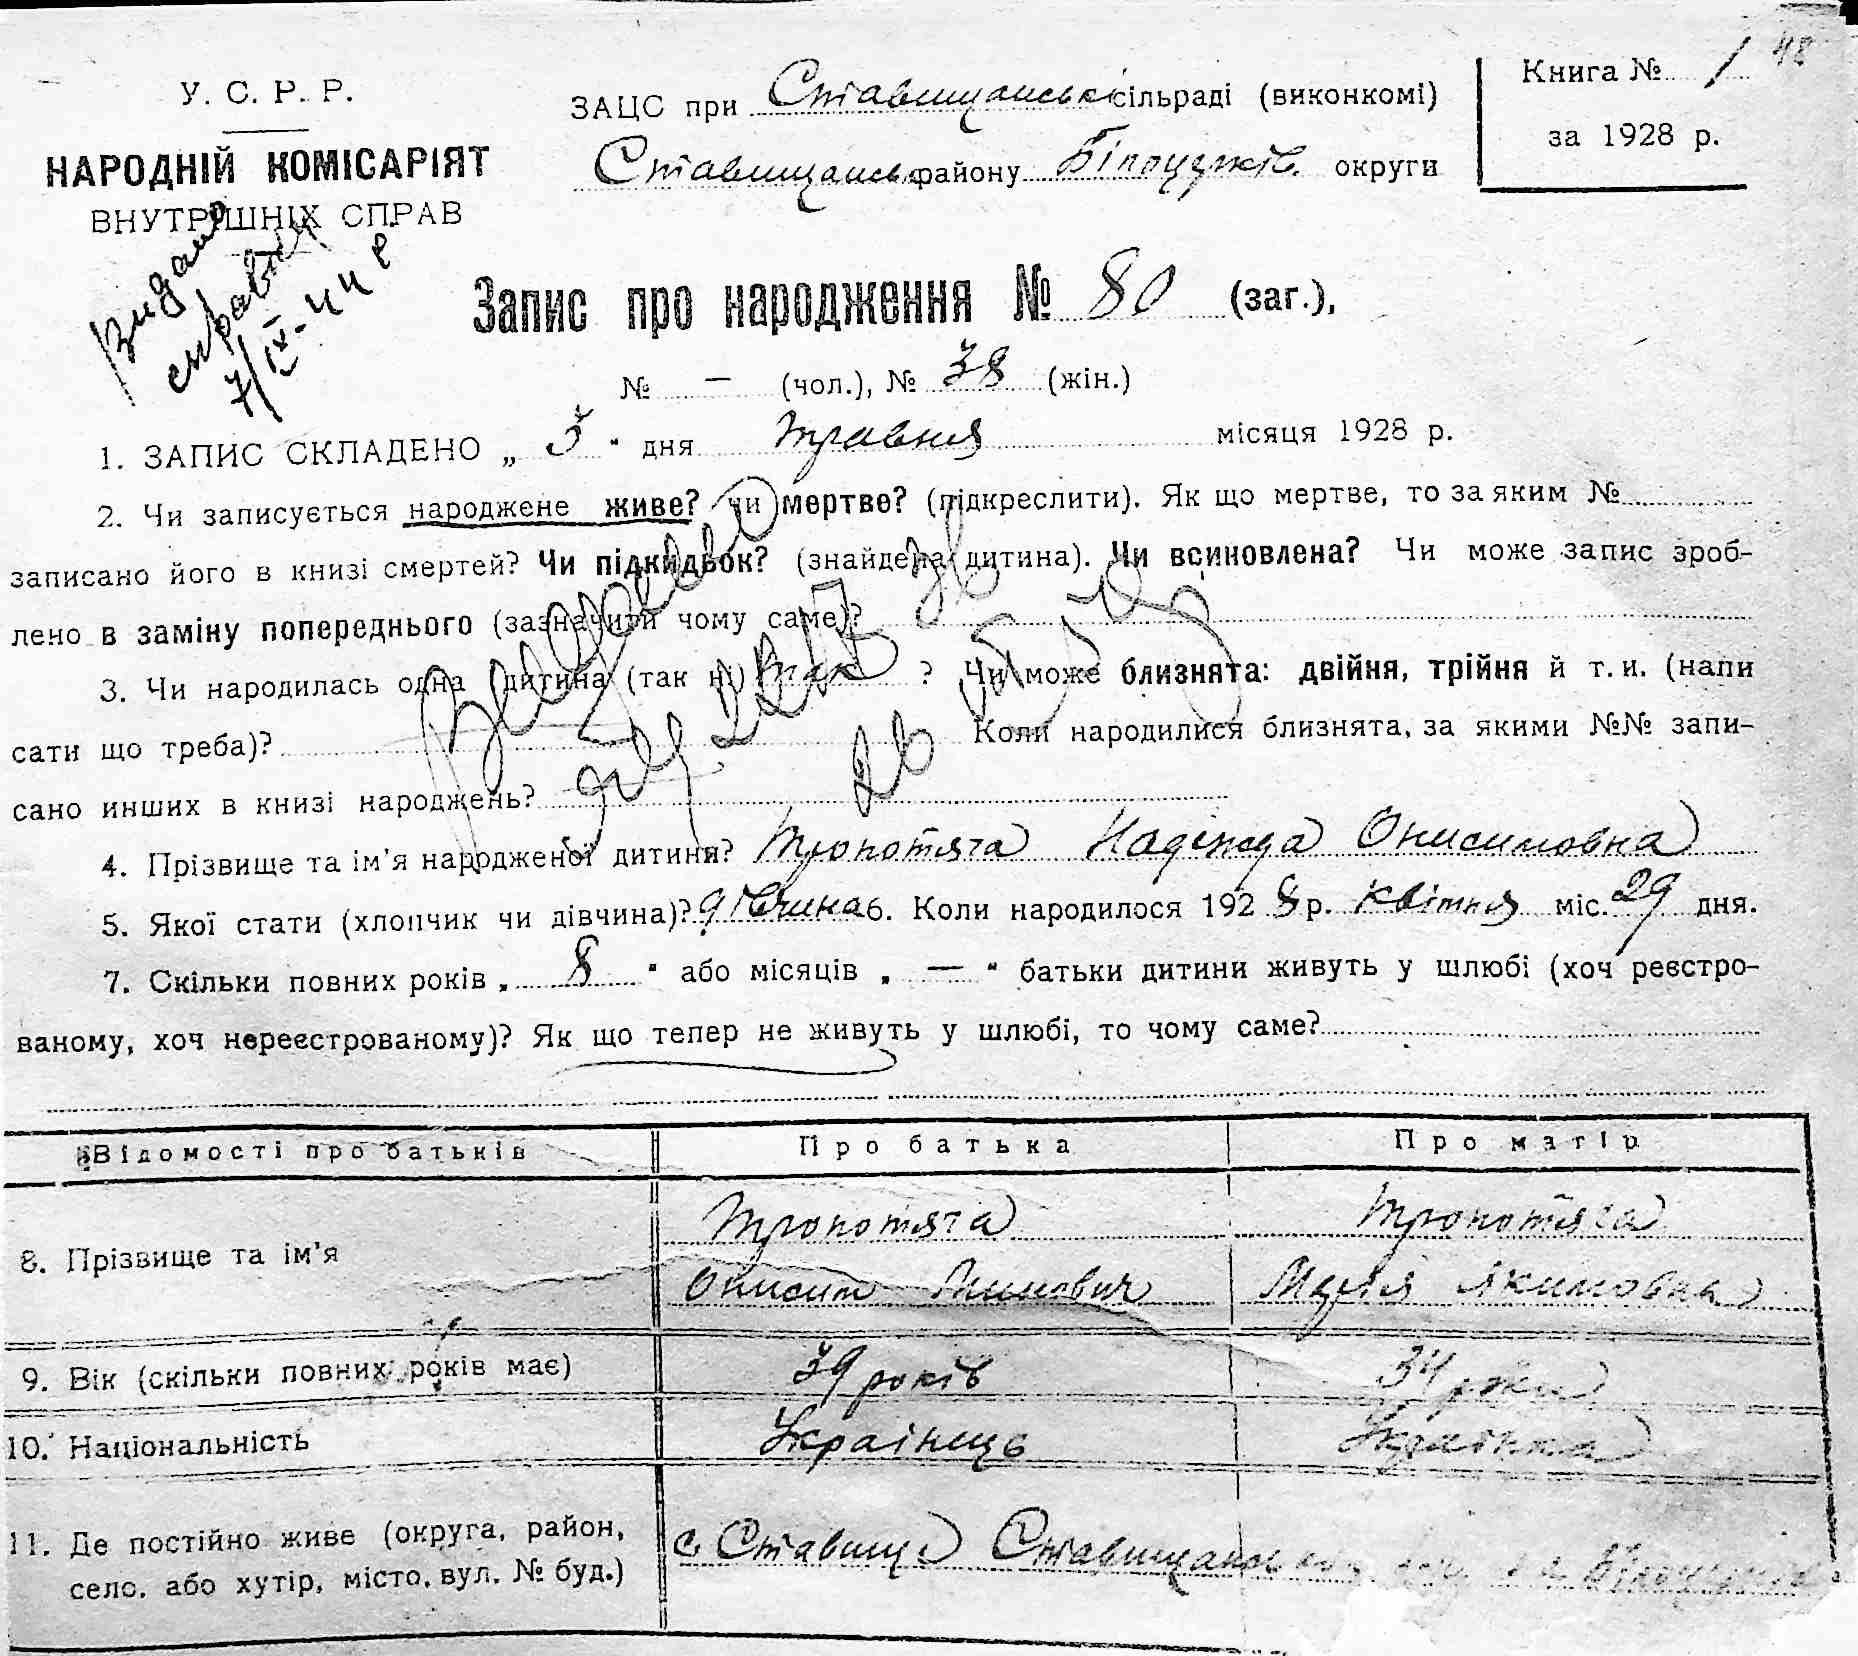 48
У. С. Р. Р.
НАРОДНІЙ КОМІСАРІЯТ
ВНУТРІШНІХ СПРАВ
ЗАЦС при Ставищанські сільраді (виконкомі)
Ставищансько району Білоцерків. округи
Книга № 1
за 1928 р.
Видано
справку
7/IX-44 р
Запис про народження № 80 (заг.),
№ — (чол.), № 38 (жін.)
1. ЗАПИС СКЛАДЕНО „ 3 " дня травня місяця 1928 р.
2. Чи записується народжене живе? чи мертве? (підкреслити). Як що мертве, то за яким №
записано його в книзі смертей? Чи підкидьок? (знайдена дитина). Чи всиновлена? Чи може запис зроб-
лено в заміну попереднього (зазначити чому саме)?
3. Чи народилась одна дитина (так ні) так ? Чи може близнята: двійня, трійня й т. и. (напи
сати що треба)? Коли народилися близнята, за якими №№ запи-
сано инших в книзі народжень?
4. Прізвище та ім'я народженої дитини? Тропотяга Надежда Онисимовна
5. Якої стати (хлопчик чи дівчина)? дівчина 6. Коли народилося 1928 р. квітня міс. 29 дня.
7. Скільки повних років „ 8 " або місяців „ — " батьки дитини живуть у шлюбі (хоч реєстро-
ваному, хоч нереєстрованому)? Як що тепер не живуть у шлюбі, то чому саме?
Відомості про батьків Про батька Про матір
8. Прізвище та ім'я Тропотяга Тропотяга
Онисим Якимовна
9. Вік (скільки повних років має) 39 років 34 роки
10. Національність Українець Українка
11. Де постійно живе (округа, район,
село, або хутір, місто, вул. № буд.)
с. Ставище Ставищанськ